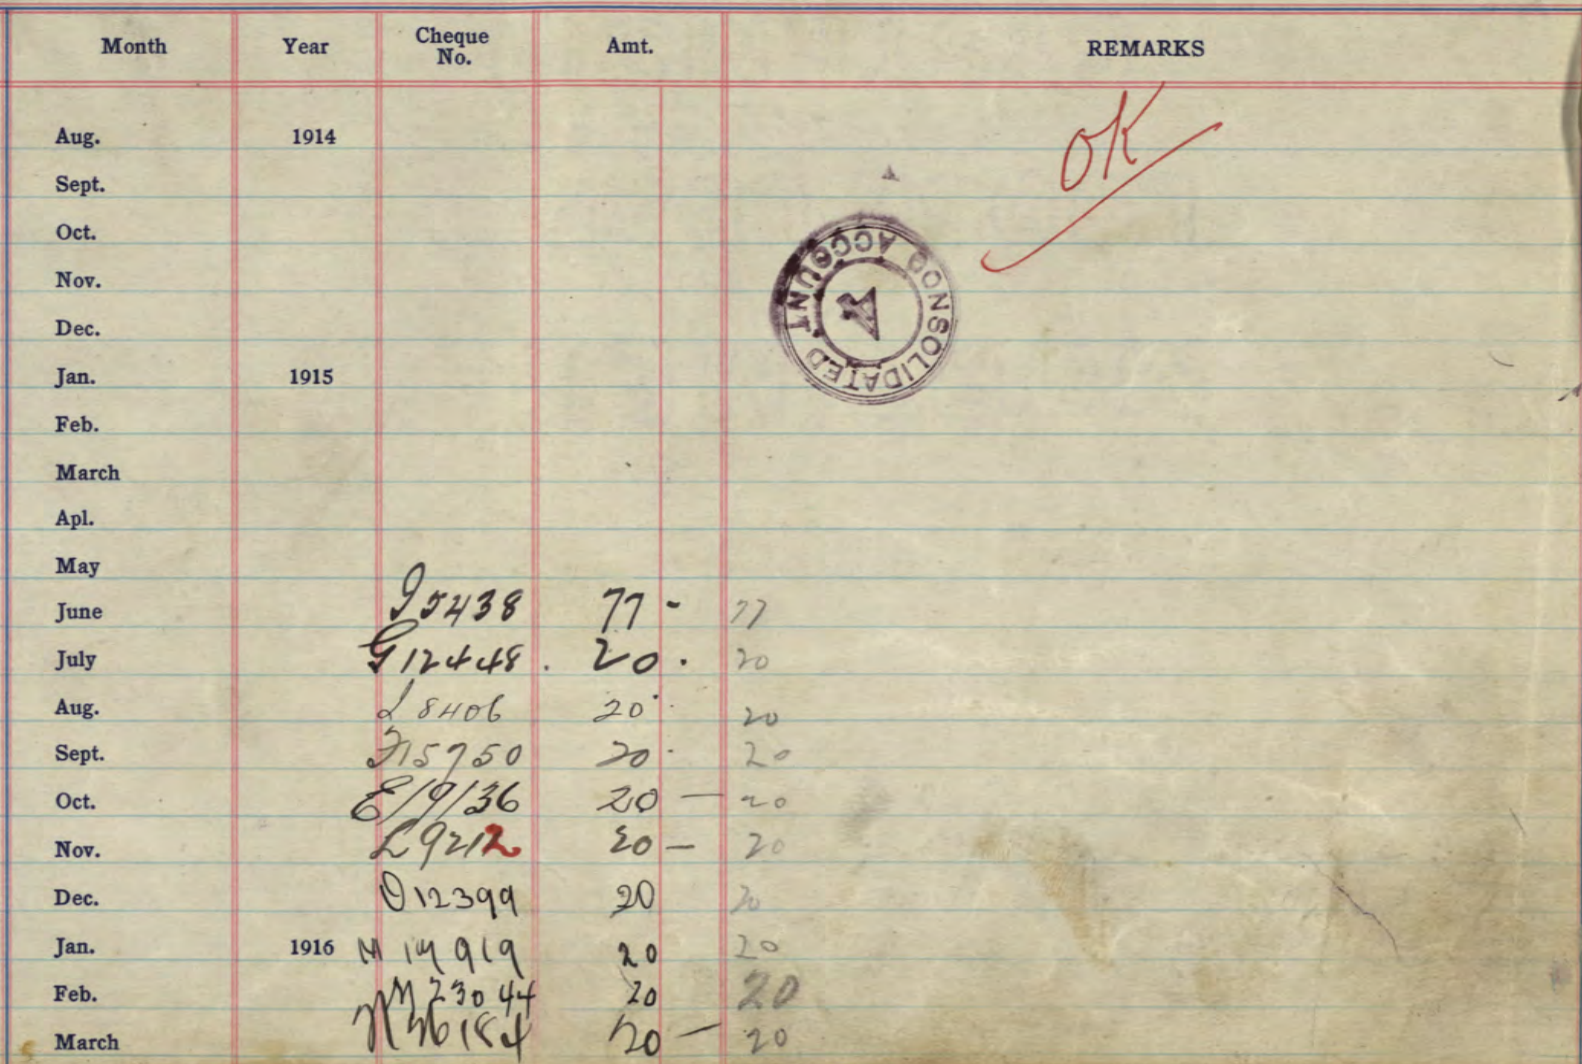 Month Year Cheque No. Amt. REMARKS
Aug. 1914 OK
Sept.
Oct.
CONSOLIDATED ACCOUNT A
Nov.
Dec.
Jan. 1915
Feb.
March
Apl.
May
June I5438 77 - 77
July G12448. 20. 20
Aug. L8406 20 20
Sept. F15750 20 20
Oct. E19136 20 - 20
Nov. L9212 20 - 20
Dec. O12399 20 20
Jan. 1916 20 20
Feb. 23044 20 20
March 20 - 20